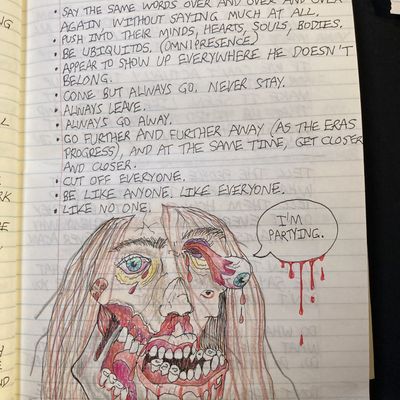 NG
• SAY THE SAME WORDS OVER AND OVER AND OVER
AGAIN WITHOUT SAYING MUCH AT ALL.
• PUSH INTO THEIR MINDS, HEARTS, SOULS, BODIES.
• BE UBIQUITOS. (OMNIPRESENCE.)
• APPEAR TO SHOW UP EVERYWHERE HE DOESN'T
BELONG.
• COME BUT ALWAYS GO. NEVER STAY.
• ALWAYS LEAVE.
• ALWAYS GO AWAY.
• GO FURTHER AND FURTHER AWAY (AS THE ERAS
PROGRESS), AND AT THE SAME TIME, GET CLOSER
AND CLOSER.
• CUT OFF EVERYONE.
• BE LIKE ANYONE. LIKE EVERYONE.
• LIKE NO ONE.
I'M
PARTYING.